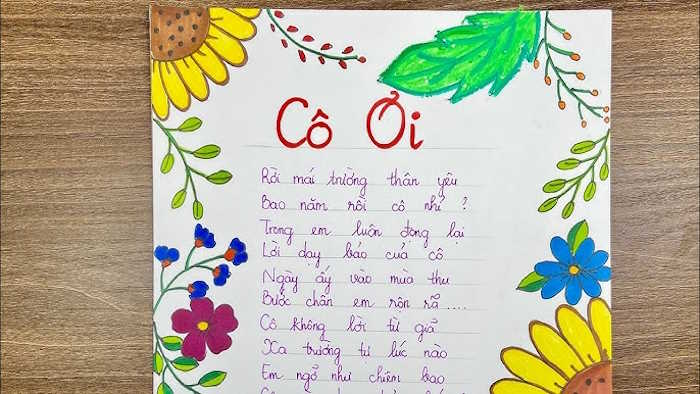 Cô Ơi
Rời mái trường thân yêu
Bao năm rồi cô nhỉ ?
Trong em luôn đọng lại
Lời dạy bảo của cô
Ngày ấy vào mùa thu
Bước chân em rộn rã ....
Cô không lời từ giã
Xa trường tự lúc nào
Em ngỡ như chiêm bao